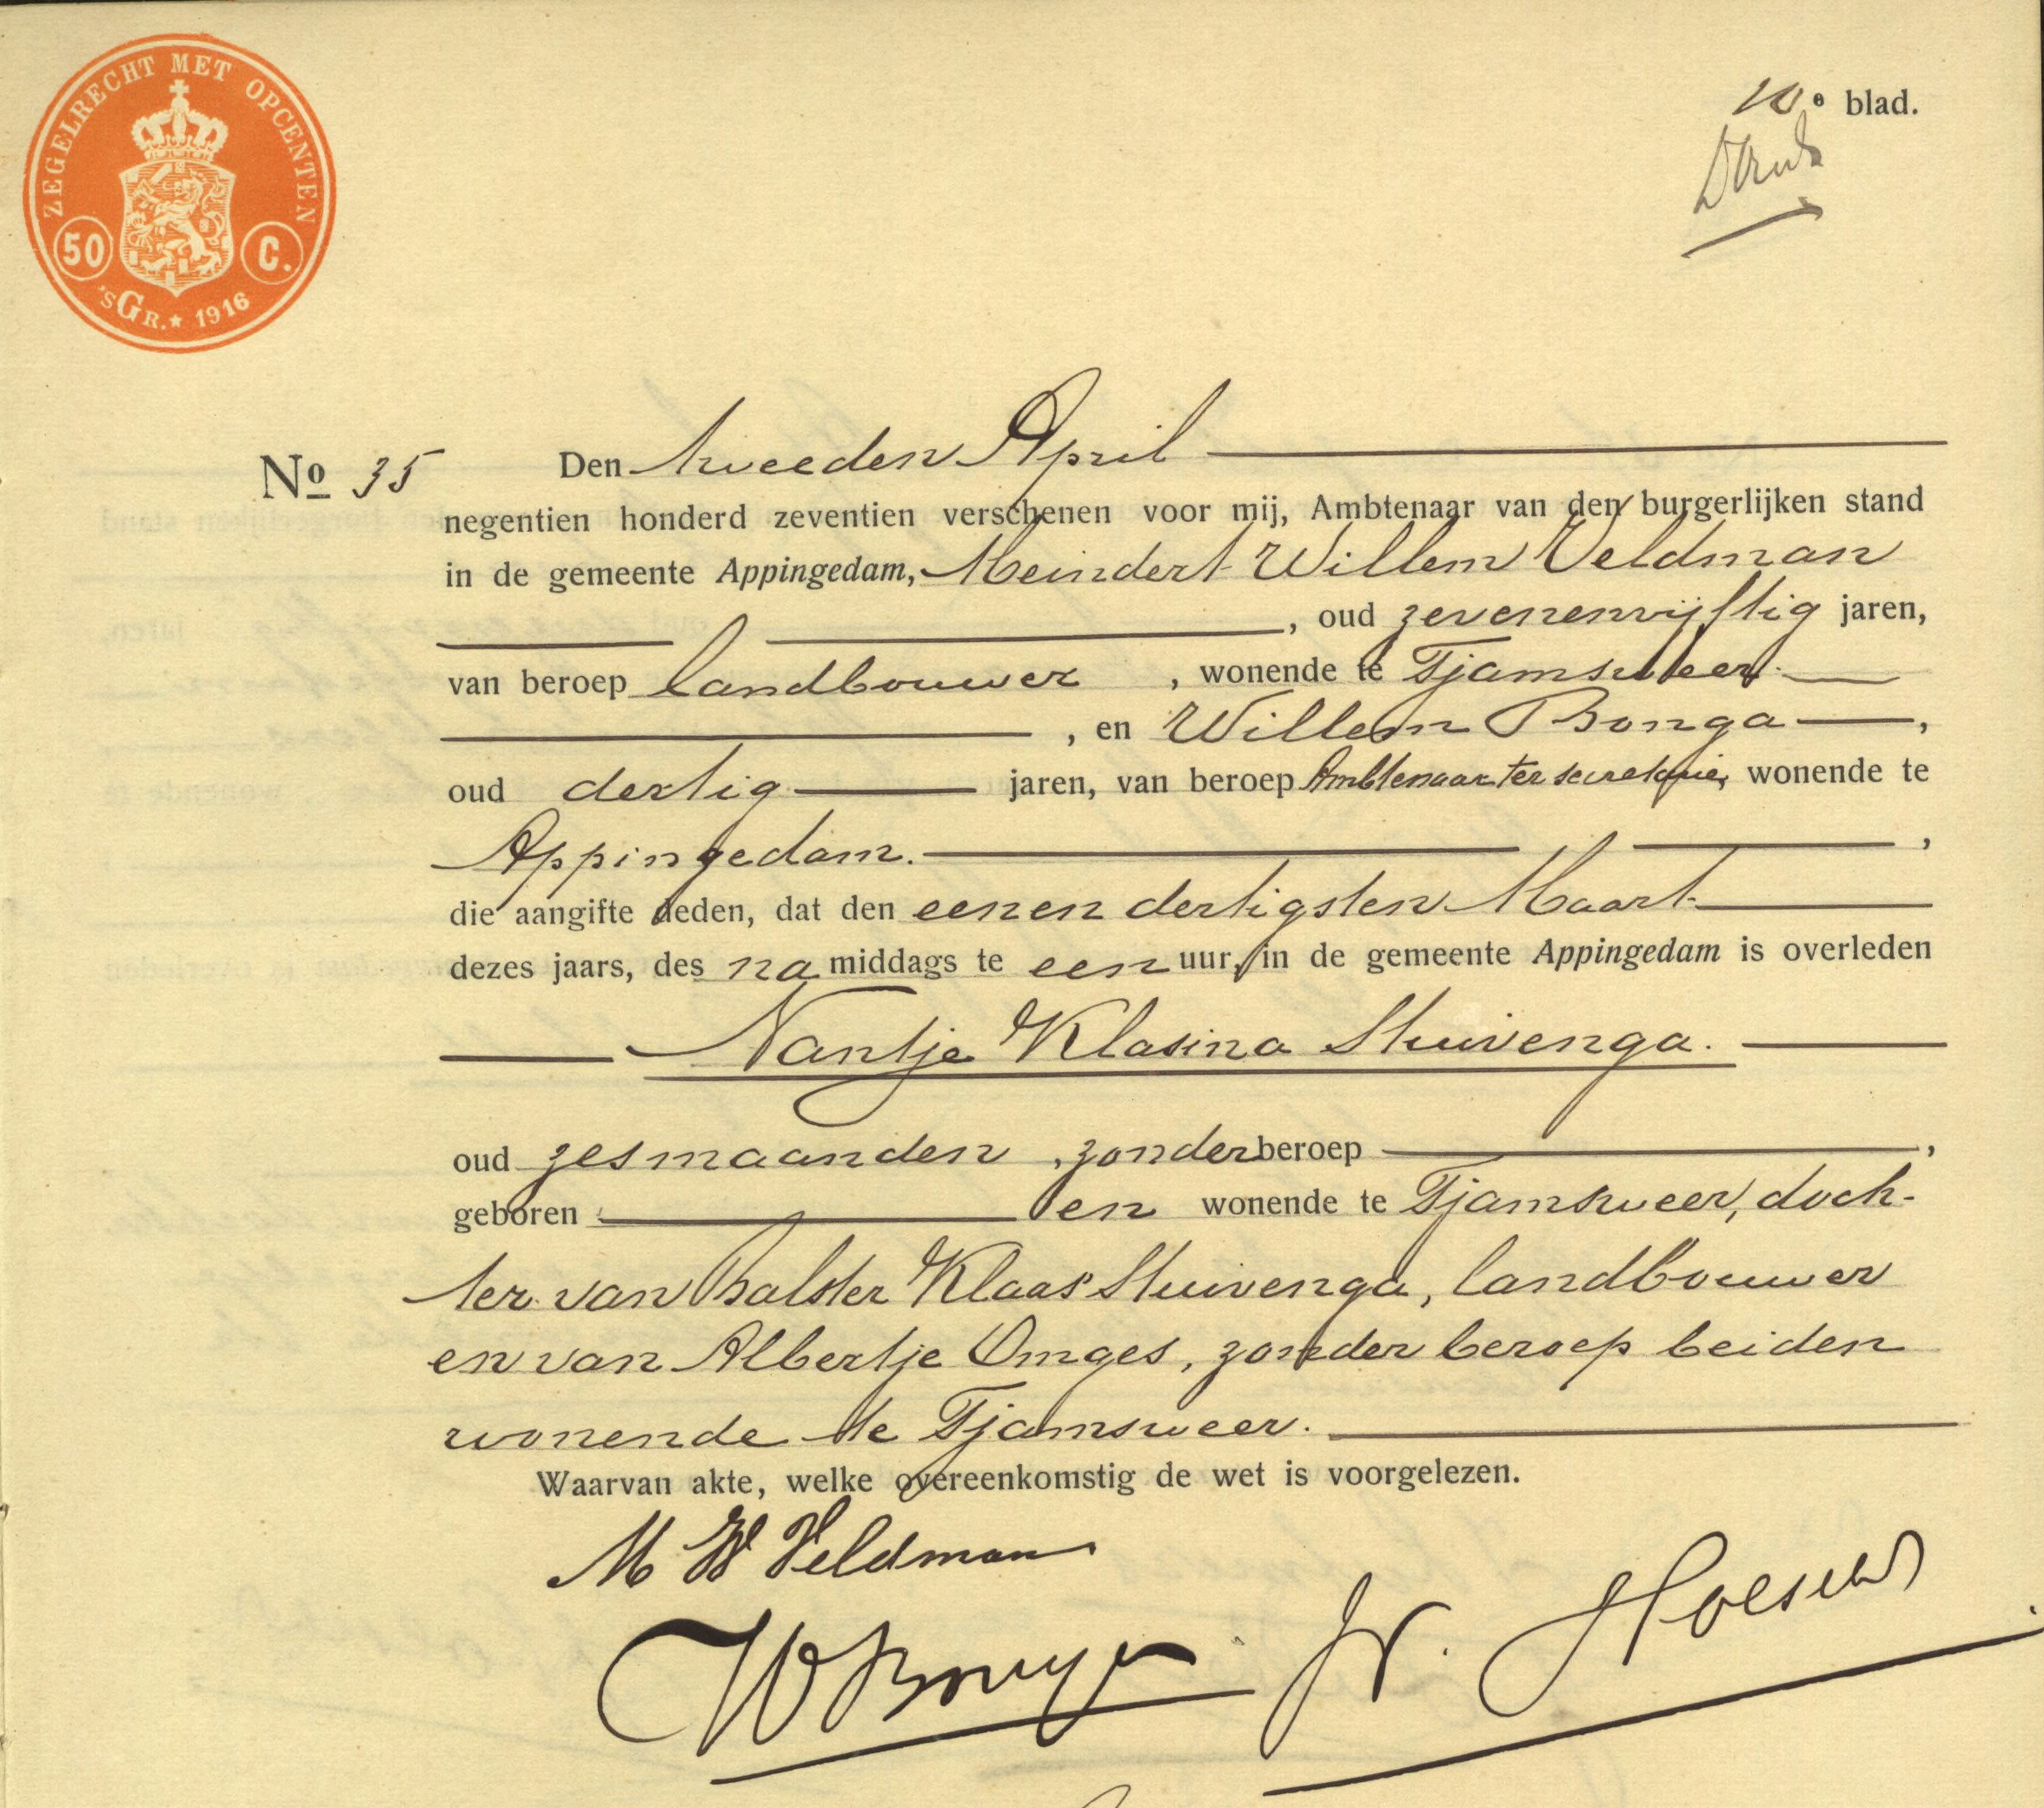 ZEGELRECHT MET OPCENTEN
50 C.
'SGR. ★ 1916
10e blad.
No 35 Den tweeden April
negentien honderd zeventien verschenen voor mij, Ambtenaar van den burgerlijken stand
in de gemeente Appingedam, Meindert Willem Veldman
, oud zevenenvijftig jaren,
van beroep landbouwer , wonende te Tjamsweer.
, en Willem Bonga ,
oud dertig jaren, van beroep Ambtenaar ter secretarie, wonende te
Appingedam. ,
die aangifte deden, dat den eenen dertigsten Maart
dezes jaars, des namiddags te een uur, in de gemeente Appingedam is overleden
Nantje Klasina Stuivenga.
oud zes maanden , zonder beroep ,
geboren en wonende te Tjamsweer, doch-
ter van Balster Klaas Stuivenga, landbouwer
en van Albertje Omges, zonder beroep beiden
wonende te Tjamsweer.
Waarvan akte, welke overeenkomstig de wet is voorgelezen.
M W Veldman
W Bonga